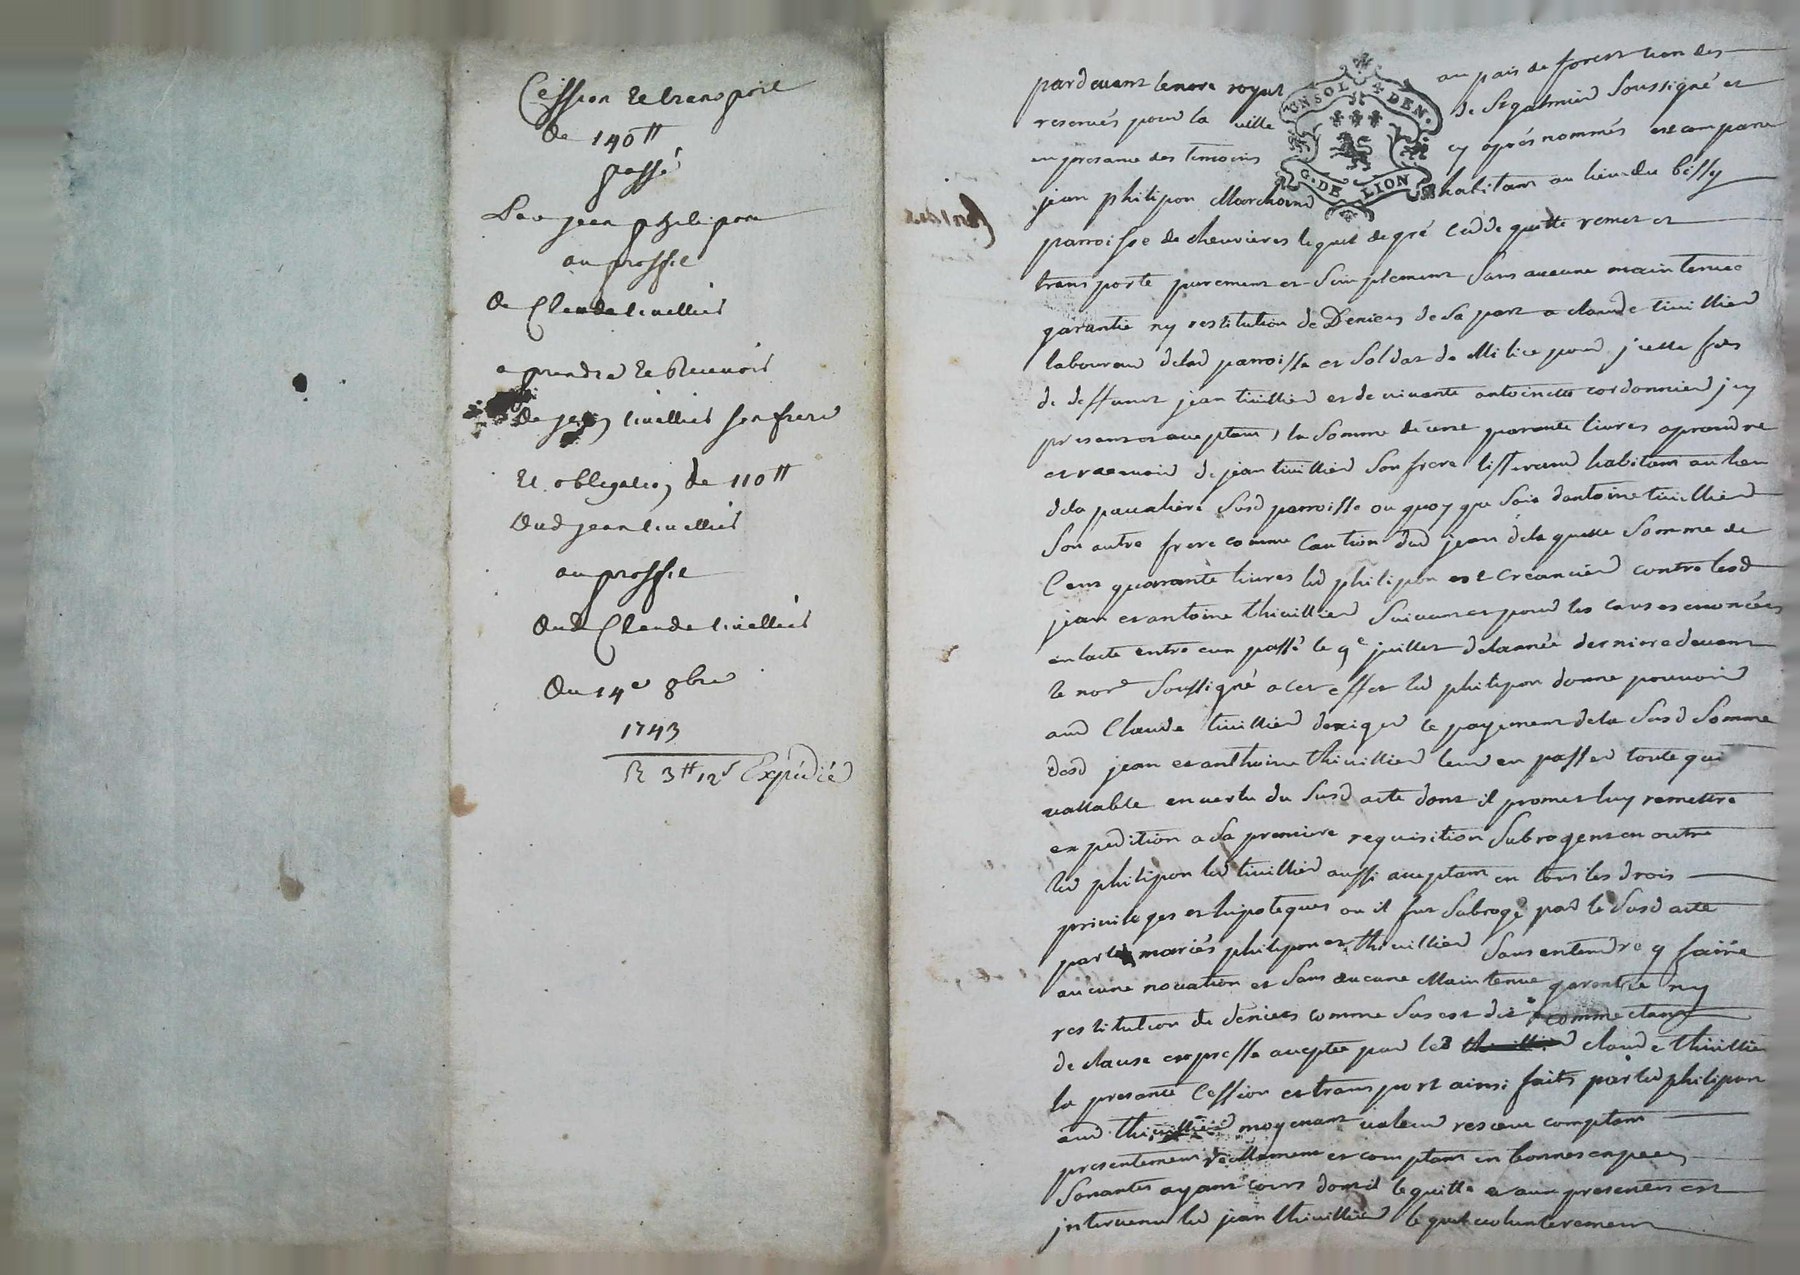 Cession et transport
de 140ᵗᵗ
passé
Par jean philipon
au proffit
de Claude tivellier
a prendre et Recevoir
de jean tivellier son frere
Et obligation de 110ᵗᵗ
dud jean tivellier
au proffit
dud Claude tivellier
Du 14e 8bre
1743
R 3ᵗᵗ 12ˢ Expédié
UN SOL 4 DEN.
G. DE LION
pardevant le nore royal au pais de forest l'un des
reservés pour la ville de St galmier soussigné et
en presance des temoins cy aprés nommés est comparu
jean philipon Marchand habitant au lieu du bissy
parroisse de chevrieres lequel de gré cedde quitte remet et
transporte purement et simplement sans aucune maintenue
garantie ny restitution de Deniers de sa part a claude tivillier
laboureur delad parroisse et soldat de Milice pour jcelle fils
de deffunt jean tivillier et de vivante antoinette cordonnier jcy
present et acceptant la somme de cent quarante livres a prendre
et recevoir de jean tivillier son frere tisserand habitant au lieu
dela pavaliere susd parroisse ou quoy que soit dantoine tivillier
son autre frere comme caution dud jean dela quelle somme de
Cent quarante livres led philipon est creancier contre lesd
jean et antoine thivillier suivant et pour les causes enoncées
en lacte entre eux passé le 9e juillet delannée derniere devant
le nore soussigné a cet effet led philipon donne pouvoir
aud Claude tivillier dexiger le payement dela susd somme
desd jean et anthoine thivillier leur en passer toute qui
vallable en vertu du susd acte dont il promet luy remettre
expedition a sa premiere requisition subrogent en outre
led philipon led tivillier aussi acceptant en tous les drois
privileges et hipoteques ou il fut subrogé par le susd acte
par les mariés philipon et thivillier sans entendre y faire
aucune novation et sans aucune Maintenue garentie ny
restitution de deniers comme sus est dit comme etant
de clause expresse acceptée par led claude thivillier
la presante Cession et transport ainsi faits par led philipon
aud thivillier moyenant valeur receue comptant
presentement reellement et comptant en bonnes especes
sonantes ayant cours dont il le quitte et aux presentes est
jntervenu led jean thivillier lequel volunterement